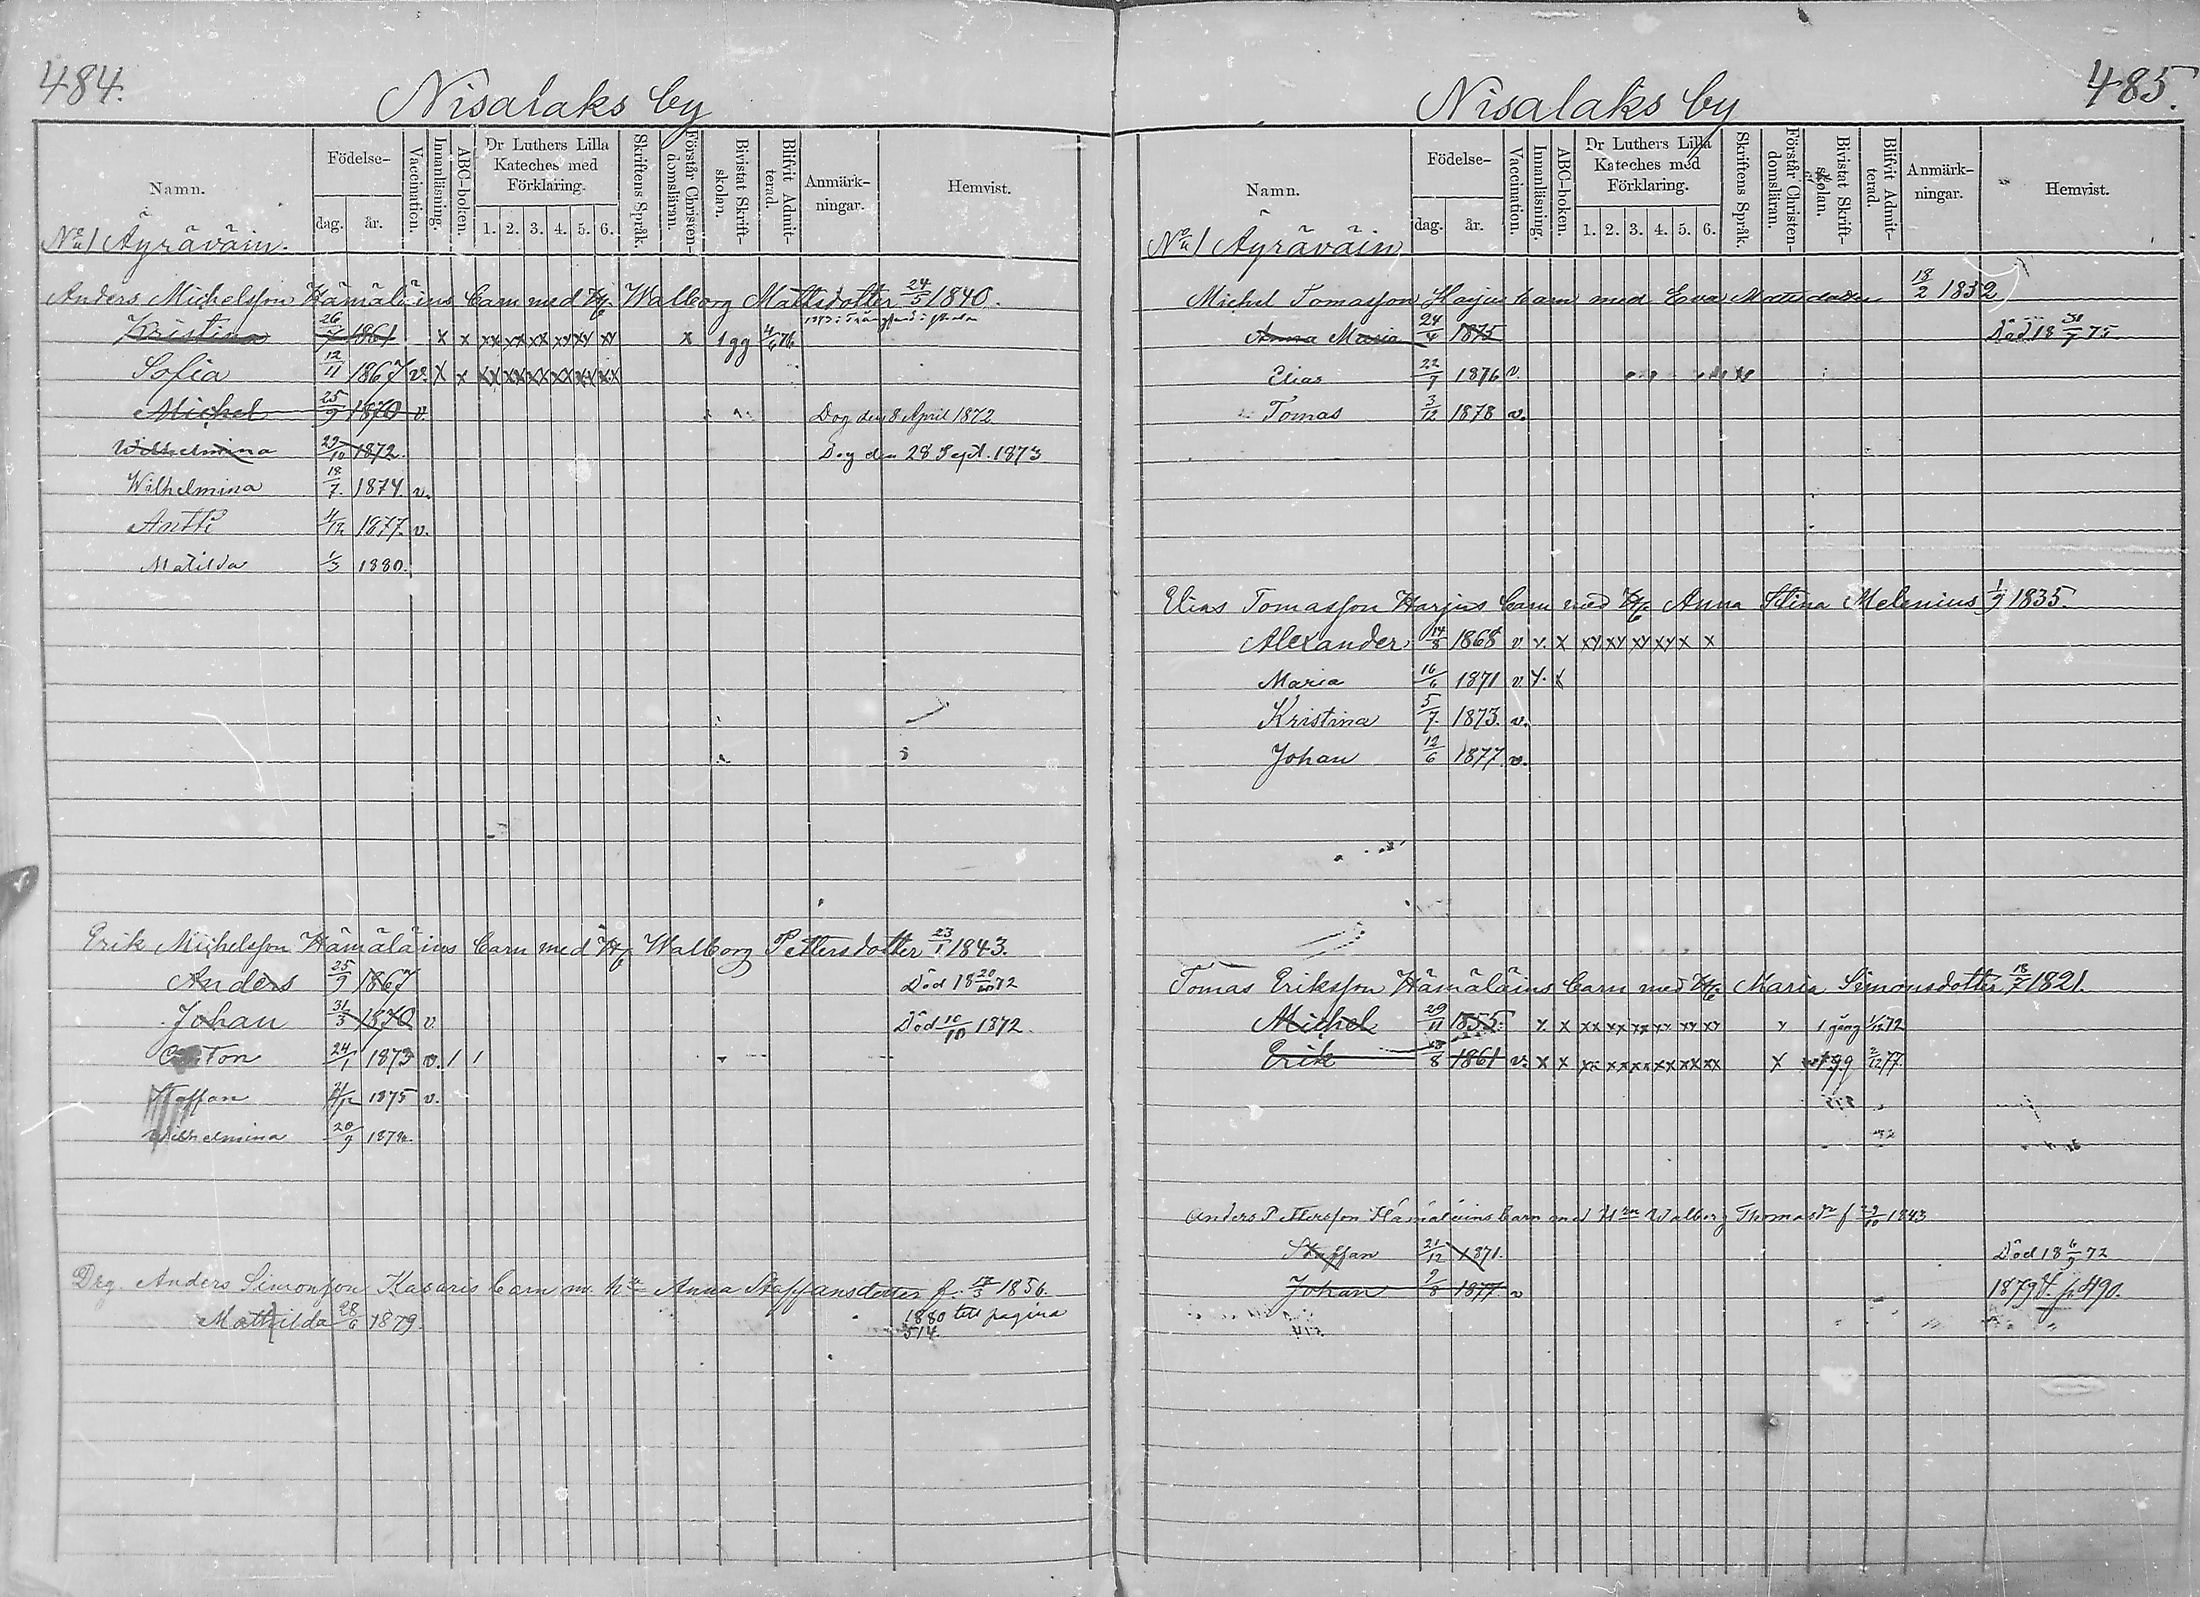 484.
Nisalaks by
Namn.
Födelse-
dag.
år.
Vaccination.
Innanläsning.
ABC-boken.
Dr Luthers Lilla Kateches med Förklaring.
1. 2. 3. 4. 5. 6.
Skriftens Språk.
Förstår Christen-domsläran.
Bivistat Skrift-skolan.
Blifvit Admit-terad.
Anmärk-ningar.
Hemvist.
No 1 Äyräväin.
Anders Michelsson Hämäläins barn med H. Walborg Mattsdotter 24/5 1840.
Kristina 26/7 1861 x x xx xx xx xx xx xx x 1 gg 4/6 76
Sofia 12/11 1867 v. x x xx xx xx xx xx xx
Michel 25/9 1870 v. Dog den 8 April 1872
Wilhelmina 29/10 1872 Dog den 28 Sept. 1873
Wilhelmina 18/7. 1874. v.
Antti 4/12 1877. v.
Matilda 1/3 1880.
Erik Michelsson Hämäläins barn med H. Walborg Pettersdotter 23/1 1843.
Anders 25/9 1867 Död 18 20/10 72
Johan 31/3 1870 v Död 10/10 1872.
Anton 24/1 1873 v. 1 1
Staffan 1875 v.
Wilhelmina 20/9 1878.
Drg. Anders Simonson Kasaris barn m. h. Anna Staffansdotter f. 17/3 1856.
Mathilda 28/6 1879. 1880 till pagina
514.
485.
Nisalaks by
Namn.
Födelse-
dag.
år.
Vaccination.
Innanläsning.
ABC-boken.
Dr Luthers Lilla Kateches med Förklaring.
1. 2. 3. 4. 5. 6.
Skriftens Språk.
Förstår Christen-domsläran.
Bivistat Skrift-skolan.
Blifvit Admit-terad.
Anmärk-ningar.
Hemvist.
No 1 Äyräväin
Michel Tomasson Harjus barn med Eva Mattsdotter 18/2 1832
Anna Maria 24/4 1875 Död 18 31/7 75.
Elias 22/7 1876 v.
Tomas 3/12 1878 v.
Elias Tomasson Harjus barn med H. Anna Stina Melenius 1/9 1835.
Alexander 14/8 1868 v x. x xx xx xx xx x x
Maria 16/6 1871 v x. x
Kristina 5/7. 1873. v.
Johan 12/6 1877. v.
Tomas Eriksson Hämäläins barn med H. Maria Simonsdotter 18/7 1821.
Michel 29/11 1855. x x xx xx xx xx xx xx x 1 gång 1/12 72
Erik 1861 v. x x xx xx xx xx xx xx x 1 gg 2/12 77.
Anders Petterson Hämäläins barn med Hu Walborg Thomasdr f 29/10 1843
Staffan 21/12 1871. Död 18 6/9 72
Johan 9/8 1877. v 1879 t. p 490.